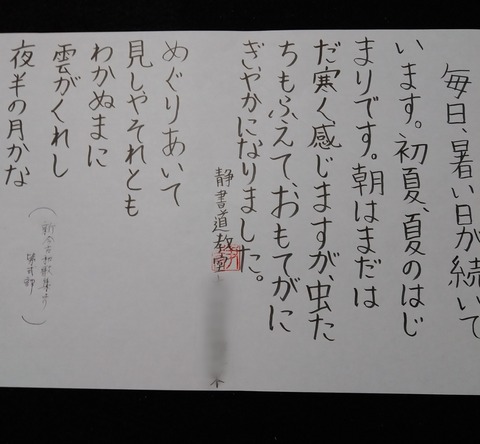 毎日、暑い日が続いて
います。初夏、夏のはじ
まりです。朝はまだは
だ寒く、感じますが、虫た
ちもふえて、おもてがに
ぎやかになりました。
静書道教室
めぐりあいて
見しやそれとも
わかぬまに
雲がくれし
夜半の月かな
(新古今和歌集より
紫式部)